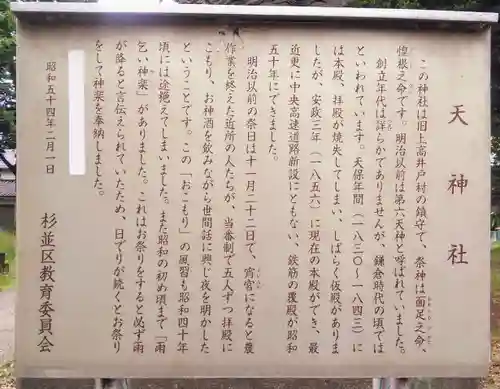 天神社
この神社は旧上高井戸村の鎮守で、祭神は面足之命、
惶根之命です。明治以前は第六天神と呼ばれていました。
創立年代は詳らかでありませんが、鎌倉時代の頃では
といわれています。天保年間（一八三〇～一八四三）に
は本殿、拝殿が焼失してしまい、しばらく仮殿がありま
したが、安政三年（一八五六）に現在の本殿ができ、最
近東に中央高速道路新設にともない、鉄筋の覆殿が昭和
五十年にできました。
明治以前の祭日は十一月二十二日で、宵宮になると農
作業を終えた近所の人たちが、当番制で五人ずつ拝殿に
こもり、お神酒を飲みながら世間話に興じ夜を明かした
ということです。この「おこもり」の風習も昭和四十年
頃には途絶えてしまいました。また昭和の初め頃まで「雨
乞い神楽」がありました。これはお祭りをすると必ず雨
が降ると言伝えられていたため、日でりが続くとお祭り
をして神楽を奉納しました。
昭和五十四年二月一日
杉並区教育委員会